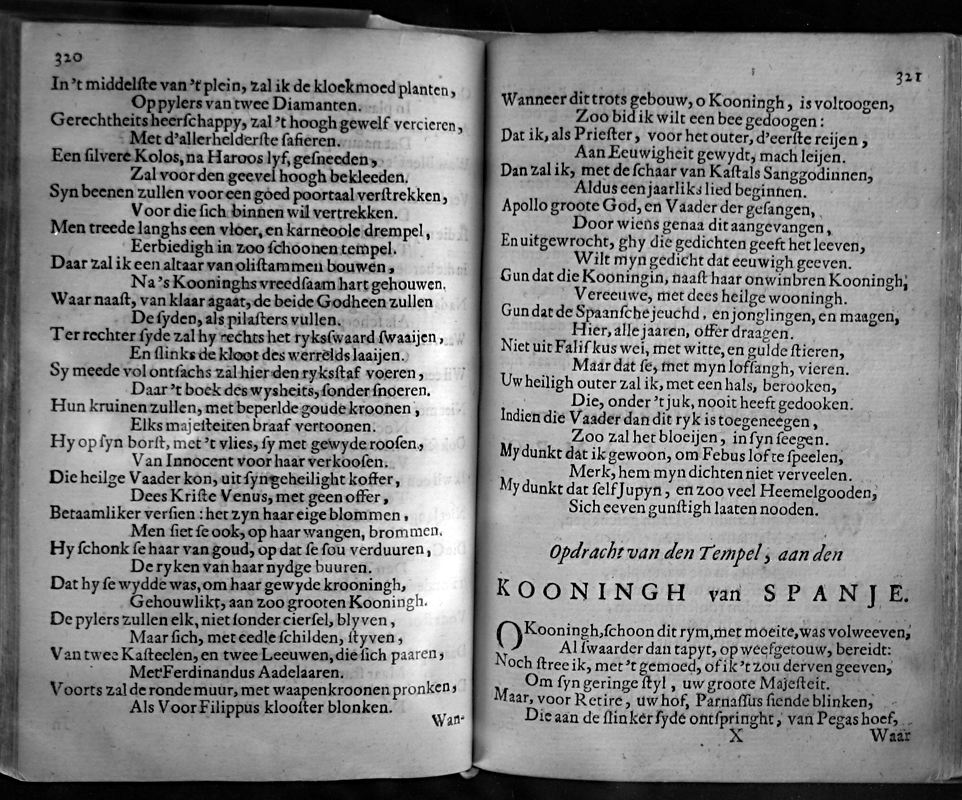 320
In 't middelſte van 't plein, zal ik de kloekmoed planten,
Op pylers van twee Diamanten.
Gerechtheits heerſchappy, zal 't hoogh gewelf vercieren,
Met d'allerhelderſte ſafieren.
Een ſilvere Kolos, na Haroos lyf, geſneeden,
Zal voor den geevel hoogh bekleeden.
Syn beenen zullen voor een goed poortaal verſtrekken,
Voor die ſich binnen wil vertrekken.
Men treede langhs een vloer, en karneoole drempel,
Eerbiedigh in zoo ſchoonen tempel.
Daar zal ik een altaar van oliſtammen bouwen,
Na 's Kooninghs vreedſaam hart gehouwen.
Waar naaſt, van klaar agaat, de beide Godheen zullen
De ſyden, als pilaſters vullen.
Ter rechter ſyde zal hy rechts het rykſwaard ſwaaijen,
En ſlinks de kloot des werrelds laaijen.
Sy meede vol ontſachs zal hier den rykſtaf voeren,
Daar 't boek des wysheits, ſonder ſnoeren.
Hun kruinen zullen, met beperlde goude kroonen,
Elks majeſteiten braaf vertoonen.
Hy op ſyn borſt, met 't vlies, ſy met gewyde rooſen,
Van Innocent voor haar verkooſen.
Die heilge Vaader kon, uit ſyn geheilight koffer,
Dees Kriſte Venus, met geen offer,
Betaamliker verſien: het zyn haar eige blommen,
Men ſiet ſe ook, op haar wangen, brommen.
Hy ſchonk ſe haar van goud, op dat ſe ſou verduuren,
De ryken van haar nydge buuren.
Dat hy ſe wydde was, om haar gewyde krooningh,
Gehouwlikt, aan zoo grooten Kooningh.
De pylers zullen elk, niet ſonder cierſel, blyven,
Maar ſich, met eedle ſchilden, ſtyven,
Van twee Kaſteelen, en twee Leeuwen, die ſich paaren,
Met Ferdinandus Aadelaaren.
Voorts zal de ronde muur, met waapenkroonen pronken,
Als Voor Filippus klooſter blonken.
Wan-
321
Wanneer dit trots gebouw, o Kooningh, is voltoogen,
Zoo bid ik wilt een bee gedoogen:
Dat ik, als Prieſter, voor het outer, d'eerſte reijen,
Aan Eeuwigheit gewydt, mach leijen.
Dan zal ik, met de ſchaar van Kaſtals Sanggodinnen,
Aldus een jaarliks lied beginnen.
Apollo groote God, en Vaader der geſangen,
Door wiens genaa dit aangevangen,
En uitgewrocht, ghy die gedichten geeft het leeven,
Wilt myn gedicht dat eeuwigh geeven.
Gun dat die Kooningin, naaſt haar onwinbren Kooningh,
Vereeuwe, met dees heilge wooningh.
Gun dat de Spaanſche jeuchd, en jonglingen, en maagen,
Hier, alle jaaren, offer draagen.
Niet uit Faliſkus wei, met witte, en gulde ſtieren,
Maar dat ſe, met myn lofſangh, vieren.
Uw heiligh outer zal ik, met een hals, berooken,
Die, onder 't juk, nooit heeft gedooken.
Indien die Vaader dan dit ryk is toegeneegen,
Zoo zal het bloeijen, in ſyn ſeegen.
My dunkt dat ik gewoon, om Febus lof te ſpeelen,
Merk, hem myn dichten niet verveelen.
My dunkt dat ſelf Jupyn, en zoo veel Heemelgooden,
Sich eeven gunſtigh laaten nooden.
Opdracht van den Tempel, aan den
KOONINGH van SPANJE.
O Kooningh, ſchoon dit rym, met moeite, was volweeven,
Al ſwaarder dan tapyt, op weefgetouw, bereidt:
Noch ſtree ik, met 't gemoed, of ik 't zou derven geeven,
Om ſyn geringe ſtyl, uw groote Majeſteit.
Maar, voor Retire, uw hof, Parnaſſus ſiende blinken,
Die aan de ſlinker ſyde ontſpringht, van Pegas hoef,
X Waar